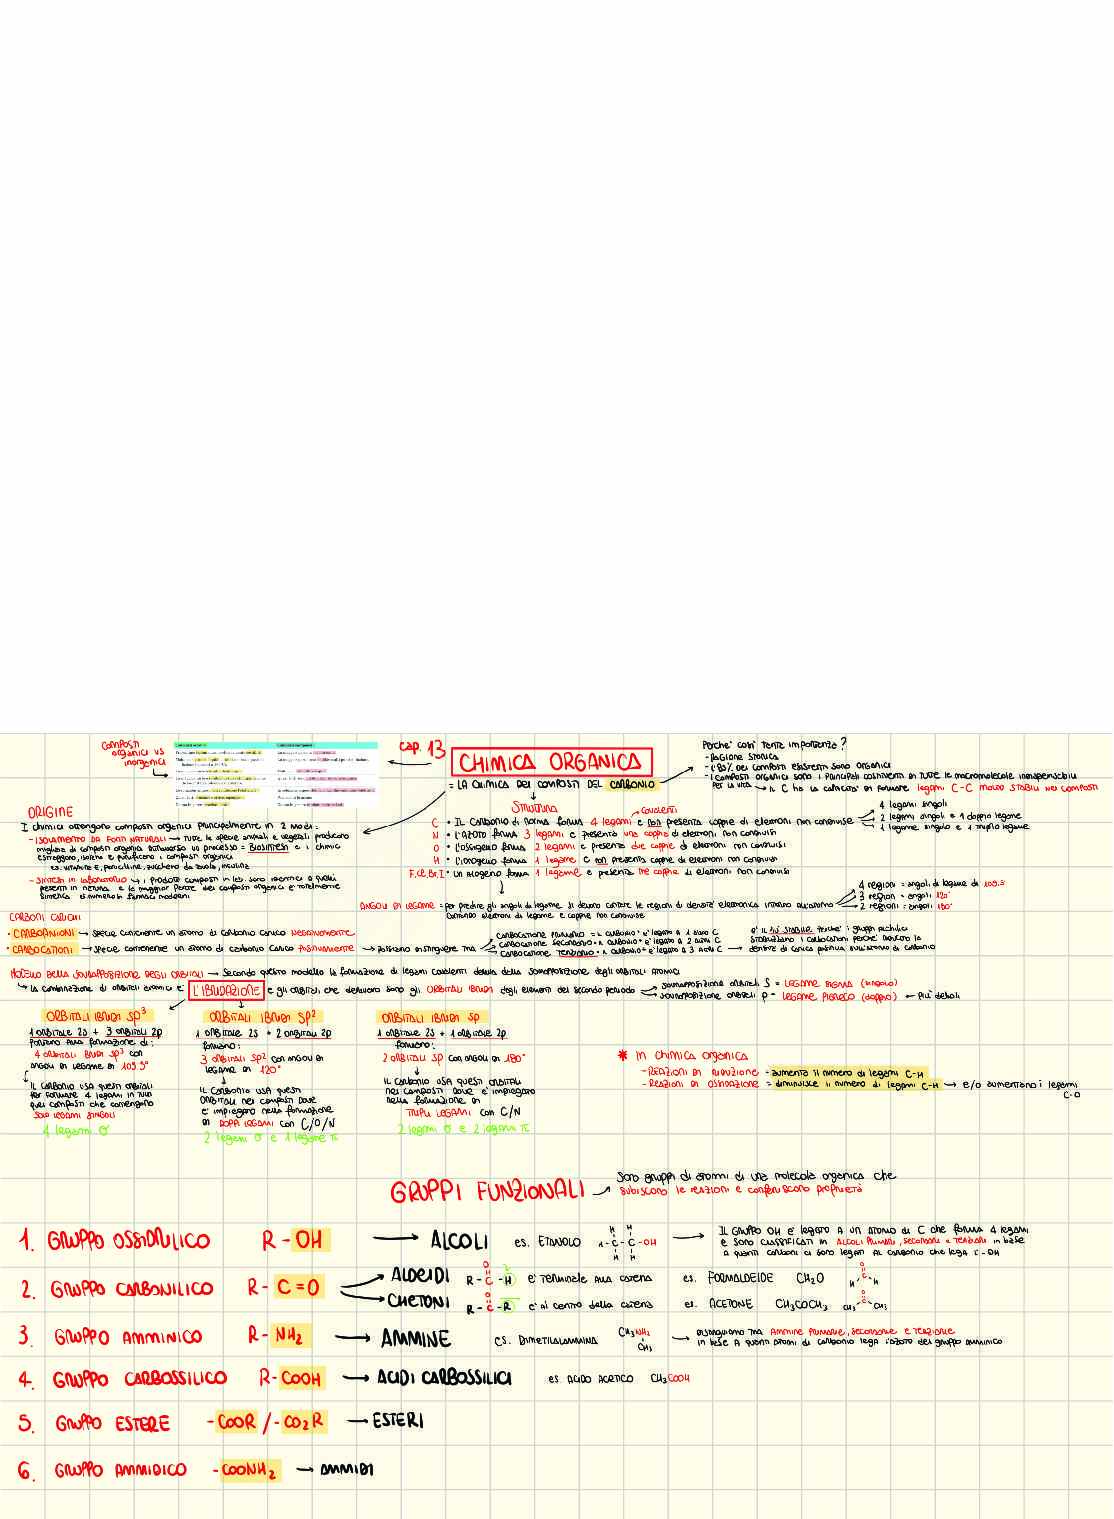 COMPOSTI
ORGANICI VS
INORGANICI
CAP. 13
CHIMICA ORGANICA
= LA CHIMICA DEI COMPOSTI DEL CARBONIO
PERCHE' COSI' TANTE IMPORTANZE?
- RAGIONE STORICA
- L'85% DEI COMPOSTI ESISTENTI SONO ORGANICI
- I COMPOSTI ORGANICI SONO I PRINCIPALI COSTITUENTI DI TUTTE LE MACROMOLECOLE INDISPENSABILI
PER LA VITA → IL C HA LA CAPACITÀ DI FORMARE LEGAMI C-C MOLTO STABILI NEI COMPOSTI
ORIGINE
I CHIMICI OTTENGONO COMPOSTI ORGANICI PRINCIPALMENTE IN 2 MODI:
- ISOLAMENTO DA FONTI NATURALI → TUTTE LE SPECIE ANIMALI E VEGETALI PRODUCONO
MIGLIAIA DI COMPOSTI ORGANICI ATTRAVERSO UN PROCESSO = BIOSINTESI E I CHIMICI
ESTRAGGONO, ISOLANO E PURIFICANO I COMPOSTI ORGANICI
ES. VITAMINE E, PENICILLINE, ZUCCHERO DA TAVOLA, INSULINA
- SINTESI IN LABORATORIO → I PRODOTTI COMPOSTI IN LAB. SONO IDENTICI A QUELLI
PRESENTI IN NATURA E LA MAGGIOR PARTE DEI COMPOSTI ORGANICI È TOTALMENTE
SINTETICA ES. NUMEROSI FARMACI MODERNI
STRUTTURA
COVALENTI
C • IL CARBONIO DI NORMA FORMA 4 LEGAMI E NON PRESENTA COPPIE DI ELETTRONI NON CONDIVISE
4 LEGAMI SINGOLI
2 LEGAMI SINGOLI E 1 DOPPIO LEGAME
1 LEGAME SINGOLO E 1 TRIPLO LEGAME
N • L'AZOTO FORMA 3 LEGAMI E PRESENTA UNA COPPIA DI ELETTRONI NON CONDIVISI
O • L'OSSIGENO FORMA 2 LEGAMI E PRESENTA DUE COPPIE DI ELETTRONI NON CONDIVISI
H • L'IDROGENO FORMA 1 LEGAME E NON PRESENTA COPPIE DI ELETTRONI NON CONDIVISI
F, Cl, Br, I • UN ALOGENO FORMA 1 LEGAME E PRESENTA TRE COPPIE DI ELETTRONI NON CONDIVISI
ANGOLI DI LEGAME = PER PREDIRE GLI ANGOLI DI LEGAME SI DEVONO CONTARE LE REGIONI DI DENSITÀ ELETTRONICA INTORNO ALL'ATOMO
CONTANDO ELETTRONI DI LEGAME E COPPIE NON CONDIVISE
4 REGIONI = ANGOLI DI LEGAME DI 109.5
3 REGIONI = ANGOLI 120°
2 REGIONI = ANGOLI 180°
CARBONI CARICHI
• CARBOANIONI → SPECIE CONTENENTE UN ATOMO DI CARBONIO CARICO NEGATIVAMENTE
• CARBOCATIONI → SPECIE CONTENENTE UN ATOMO DI CARBONIO CARICO POSITIVAMENTE → POSSIAMO DISTINGUERE TRA
CARBOCATIONE PRIMARIO = IL CARBONIO+ E' LEGATO A 1 SOLO C
CARBOCATIONE SECONDARIO • IL CARBONIO+ E' LEGATO A 2 ATOMI C
CARBOCATIONE TERZIARIO • IL CARBONIO+ E' LEGATO A 3 ATOMI C
E' IL PIÙ STABILE PERCHE' I GRUPPI ALCHILICI
STABILIZZANO I CARBOCATIONI PERCHE' RIDUCONO LA
DENSITÀ DI CARICA POSITIVA SULL'ATOMO DI CARBONIO
MODELLO DELLA SOVRAPPOSIZIONE DEGLI ORBITALI → SECONDO QUESTO MODELLO LA FORMAZIONE DI LEGAMI COVALENTI DERIVA DALLA SOVRAPPOSIZIONE DEGLI ORBITALI ATOMICI
LA COMBINAZIONE DI ORBITALI ATOMICI E' L'IBRIDAZIONE E GLI ORBITALI CHE DERIVANO SONO GLI ORBITALI IBRIDI DEGLI ELEMENTI DEL SECONDO PERIODO
SOVRAPPOSIZIONE ORBITALI S = LEGAME SIGMA (SINGOLO)
SOVRAPPOSIZIONE ORBITALI P = LEGAME PIGRECO (DOPPIO) ← PIU' DEBOLI
ORBITALI IBRIDI SP³
1 ORBITALE 2S + 3 ORBITALI 2P
PORTANO ALLA FORMAZIONE DI:
4 ORBITALI IBRIDI SP³ CON
ANGOLI DI LEGAME DI 109.5°
IL CARBONIO USA QUESTI ORBITALI
PER FORMARE 4 LEGAMI IN TUTTI
QUEI COMPOSTI CHE CONTENGONO
SOLO LEGAMI SINGOLI
4 LEGAMI σ
ORBITALI IBRIDI SP²
1 ORBITALE 2S + 2 ORBITALI 2P
FORMANO:
3 ORBITALI SP² CON ANGOLI DI
LEGAME DI 120°
IL CARBONIO USA QUESTI
ORBITALI NEI COMPOSTI DOVE
E' IMPIEGATO NELLA FORMAZIONE
DI DOPPI LEGAMI CON C/O/N
2 LEGAMI σ E 1 LEGAME π
ORBITALI IBRIDI SP
1 ORBITALE 2S + 1 ORBITALE 2P
FORMANO:
2 ORBITALI SP CON ANGOLI DI 180°
IL CARBONIO USA QUESTI ORBITALI
NEI COMPOSTI DOVE E' IMPIEGATO
NELLA FORMAZIONE DI
TRIPLI LEGAMI CON C/N
2 LEGAMI σ E 2 LEGAMI π
* IN CHIMICA ORGANICA
- REAZIONI DI RIDUZIONE = AUMENTO IL NUMERO DI LEGAMI C-H
- REAZIONI DI OSSIDAZIONE = DIMINUISCE IL NUMERO DI LEGAMI C-H → E/O AUMENTANO I LEGAMI
C-O
GRUPPI FUNZIONALI
SONO GRUPPI DI ATOMI DI UNA MOLECOLA ORGANICA CHE
SUBISCONO LE REAZIONI E CONFERISCONO PROPRIETÀ
1. GRUPPO OSSIDRILICO R-OH → ALCOLI ES. ETANOLO
H H
H-C-C-OH
H H
IL GRUPPO OH E' LEGATO A UN ATOMO DI C CHE FORMA 4 LEGAMI
E SONO CLASSIFICATI IN ALCOLI PRIMARI, SECONDARI E TERZIARI IN BASE
A QUANTI CARBONI CI SONO LEGATI AL CARBONIO CHE LEGA C-OH
2. GRUPPO CARBONILICO R-C=O
ALDEIDI
O
R-C-H E' TERMINALE ALLA CATENA ES. FORMALDEIDE CH₂O
O
C
H H
CHETONI
O
R-C-R E' AL CENTRO DELLA CATENA ES. ACETONE CH₃COCH₃
O
C
CH₃ CH₃
3. GRUPPO AMMINICO R-NH₂ → AMMINE ES. DIMETILALAMMINA
CH₃NH₂
CH₃
DISTINGUIAMO TRA AMMINE PRIMARIE, SECONDARIE E TERZIARIE
IN BASE A QUANTI ATOMI DI CARBONIO LEGA L'AZOTO DEL GRUPPO AMMINICO
4. GRUPPO CARBOSSILICO R-COOH → ACIDI CARBOSSILICI ES. ACIDO ACETICO CH₃COOH
5. GRUPPO ESTERE -COOR / -CO₂R → ESTERI
6. GRUPPO AMMIDICO -COONH₂ → AMMIDI